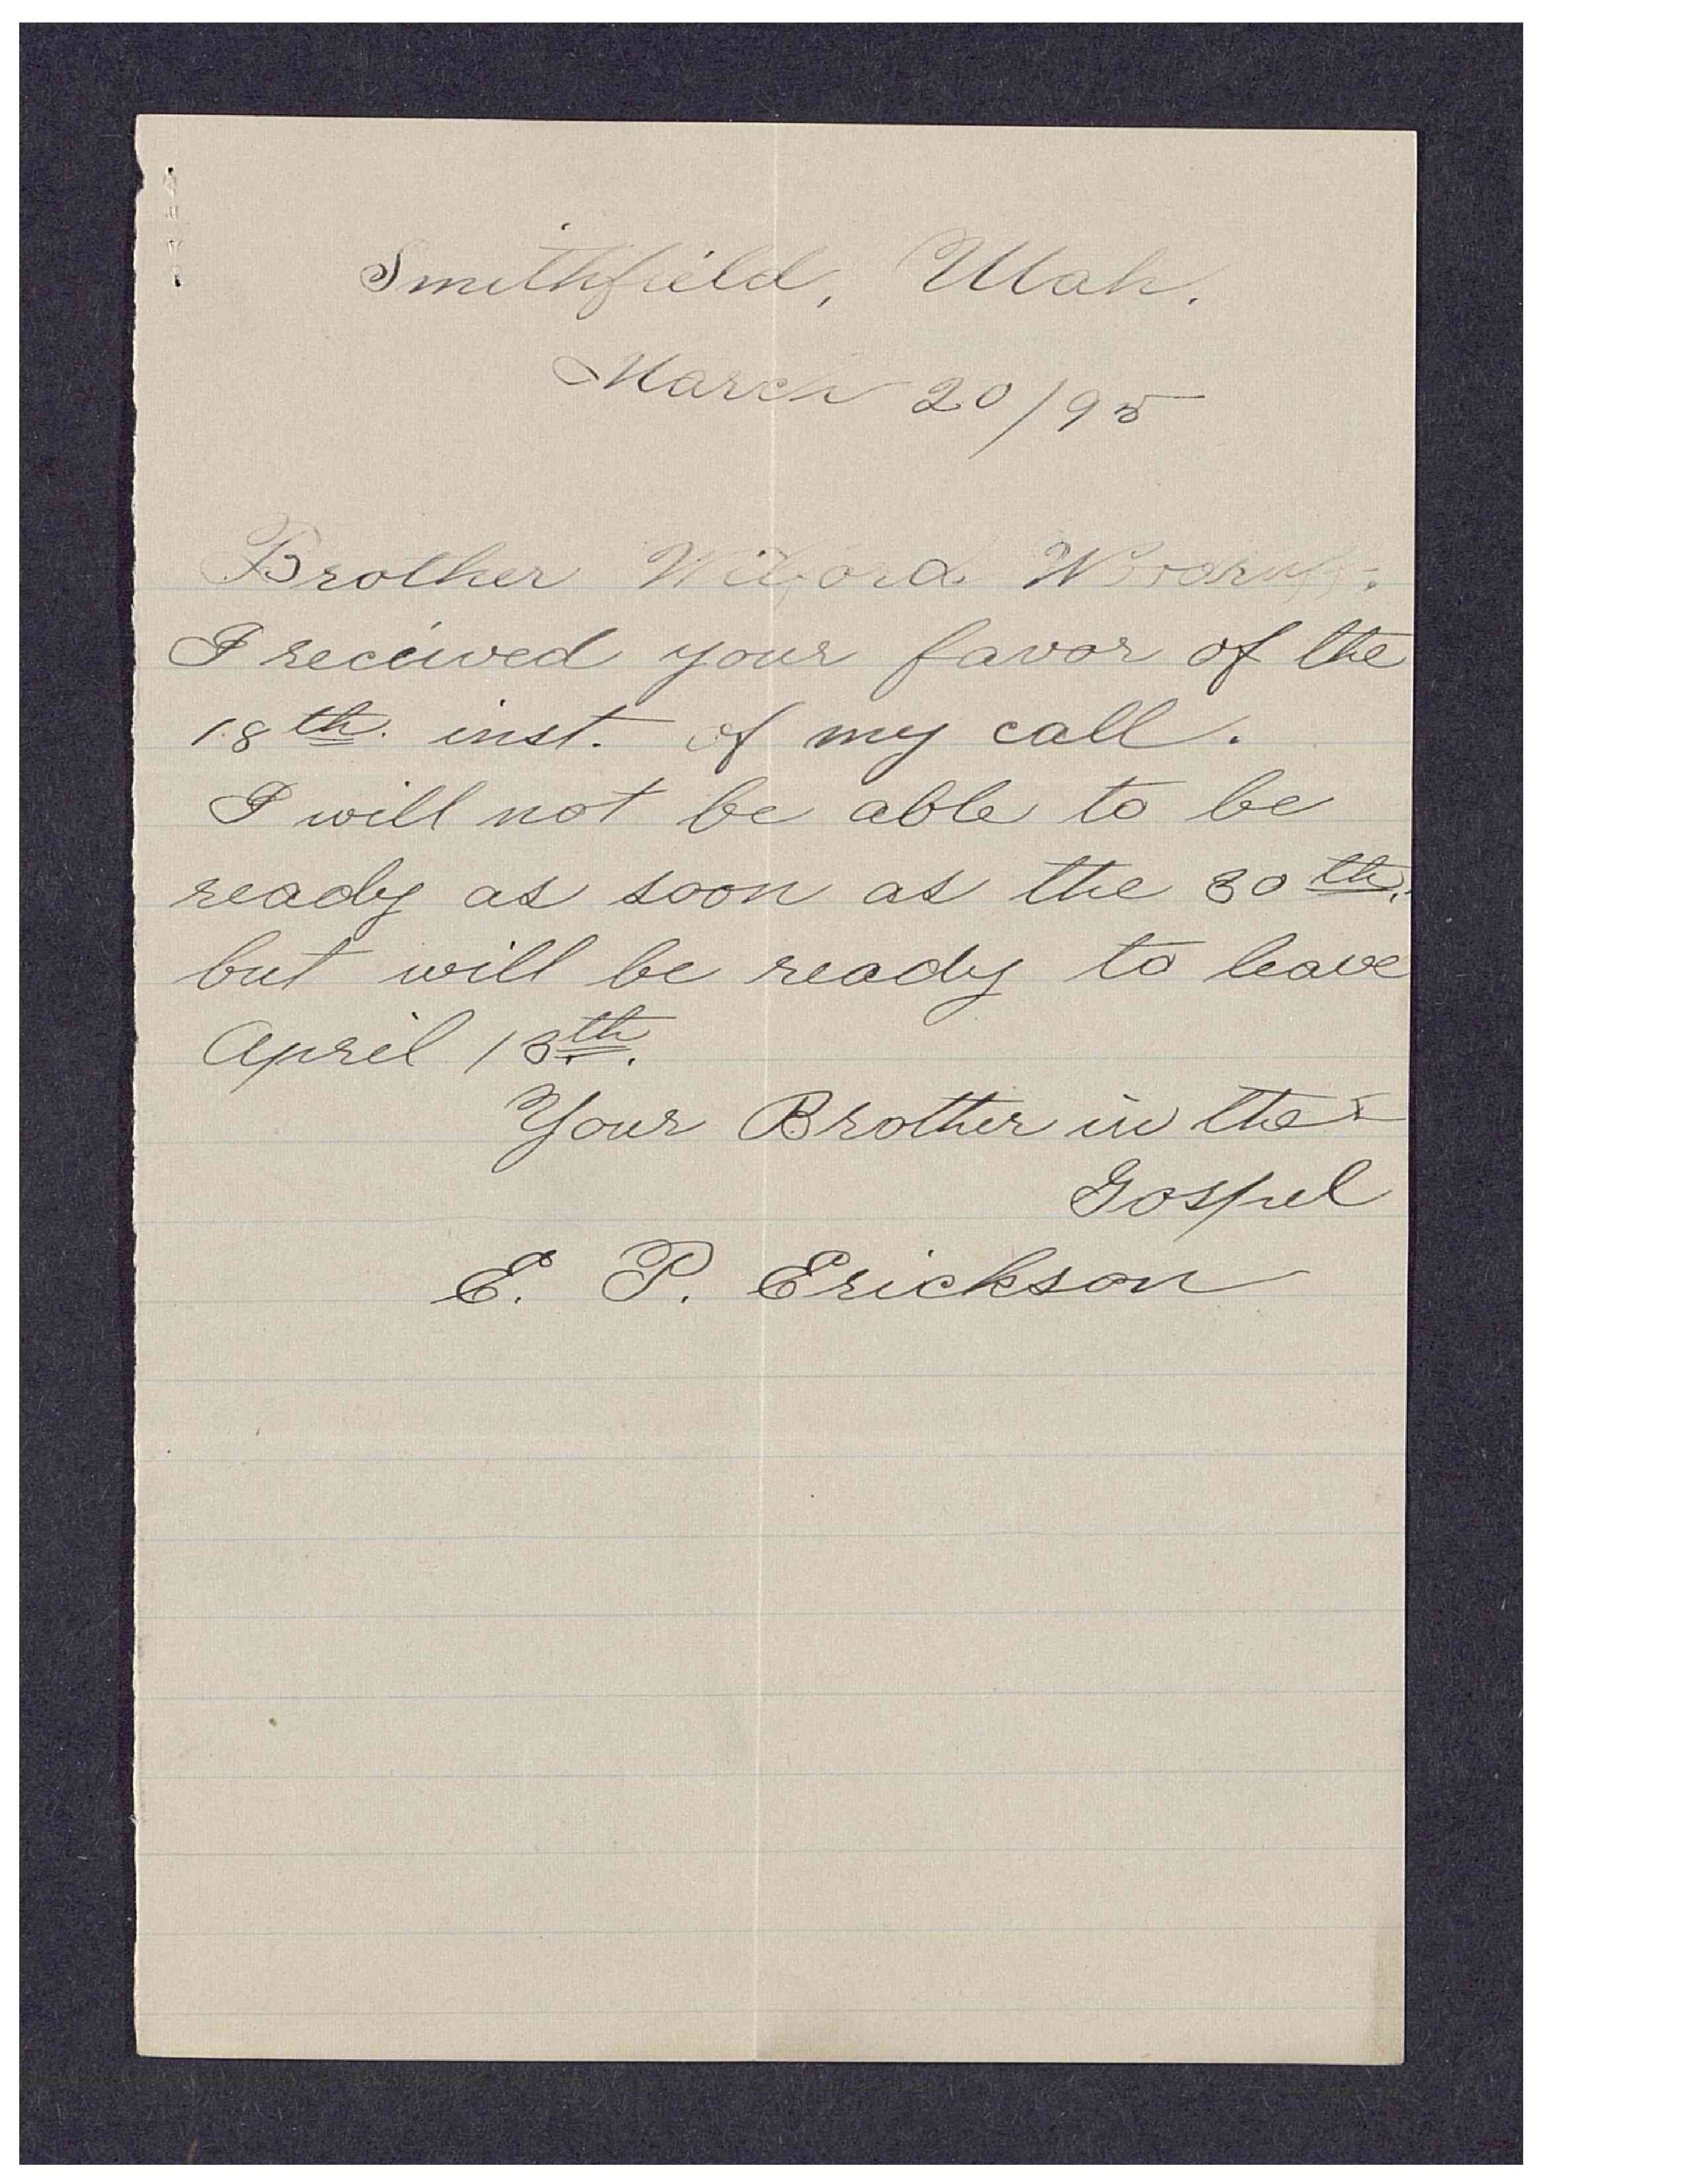 Smithfield, Utah.
March 20/95
Brother Wilford Woodruff:
I received your favor of the
18th. inst. of my call.
I will not be able to be
ready as soon as the 30th.
but will be ready to leave
April 13th.
Your Brother in the
Gospel
E. P. Erickson